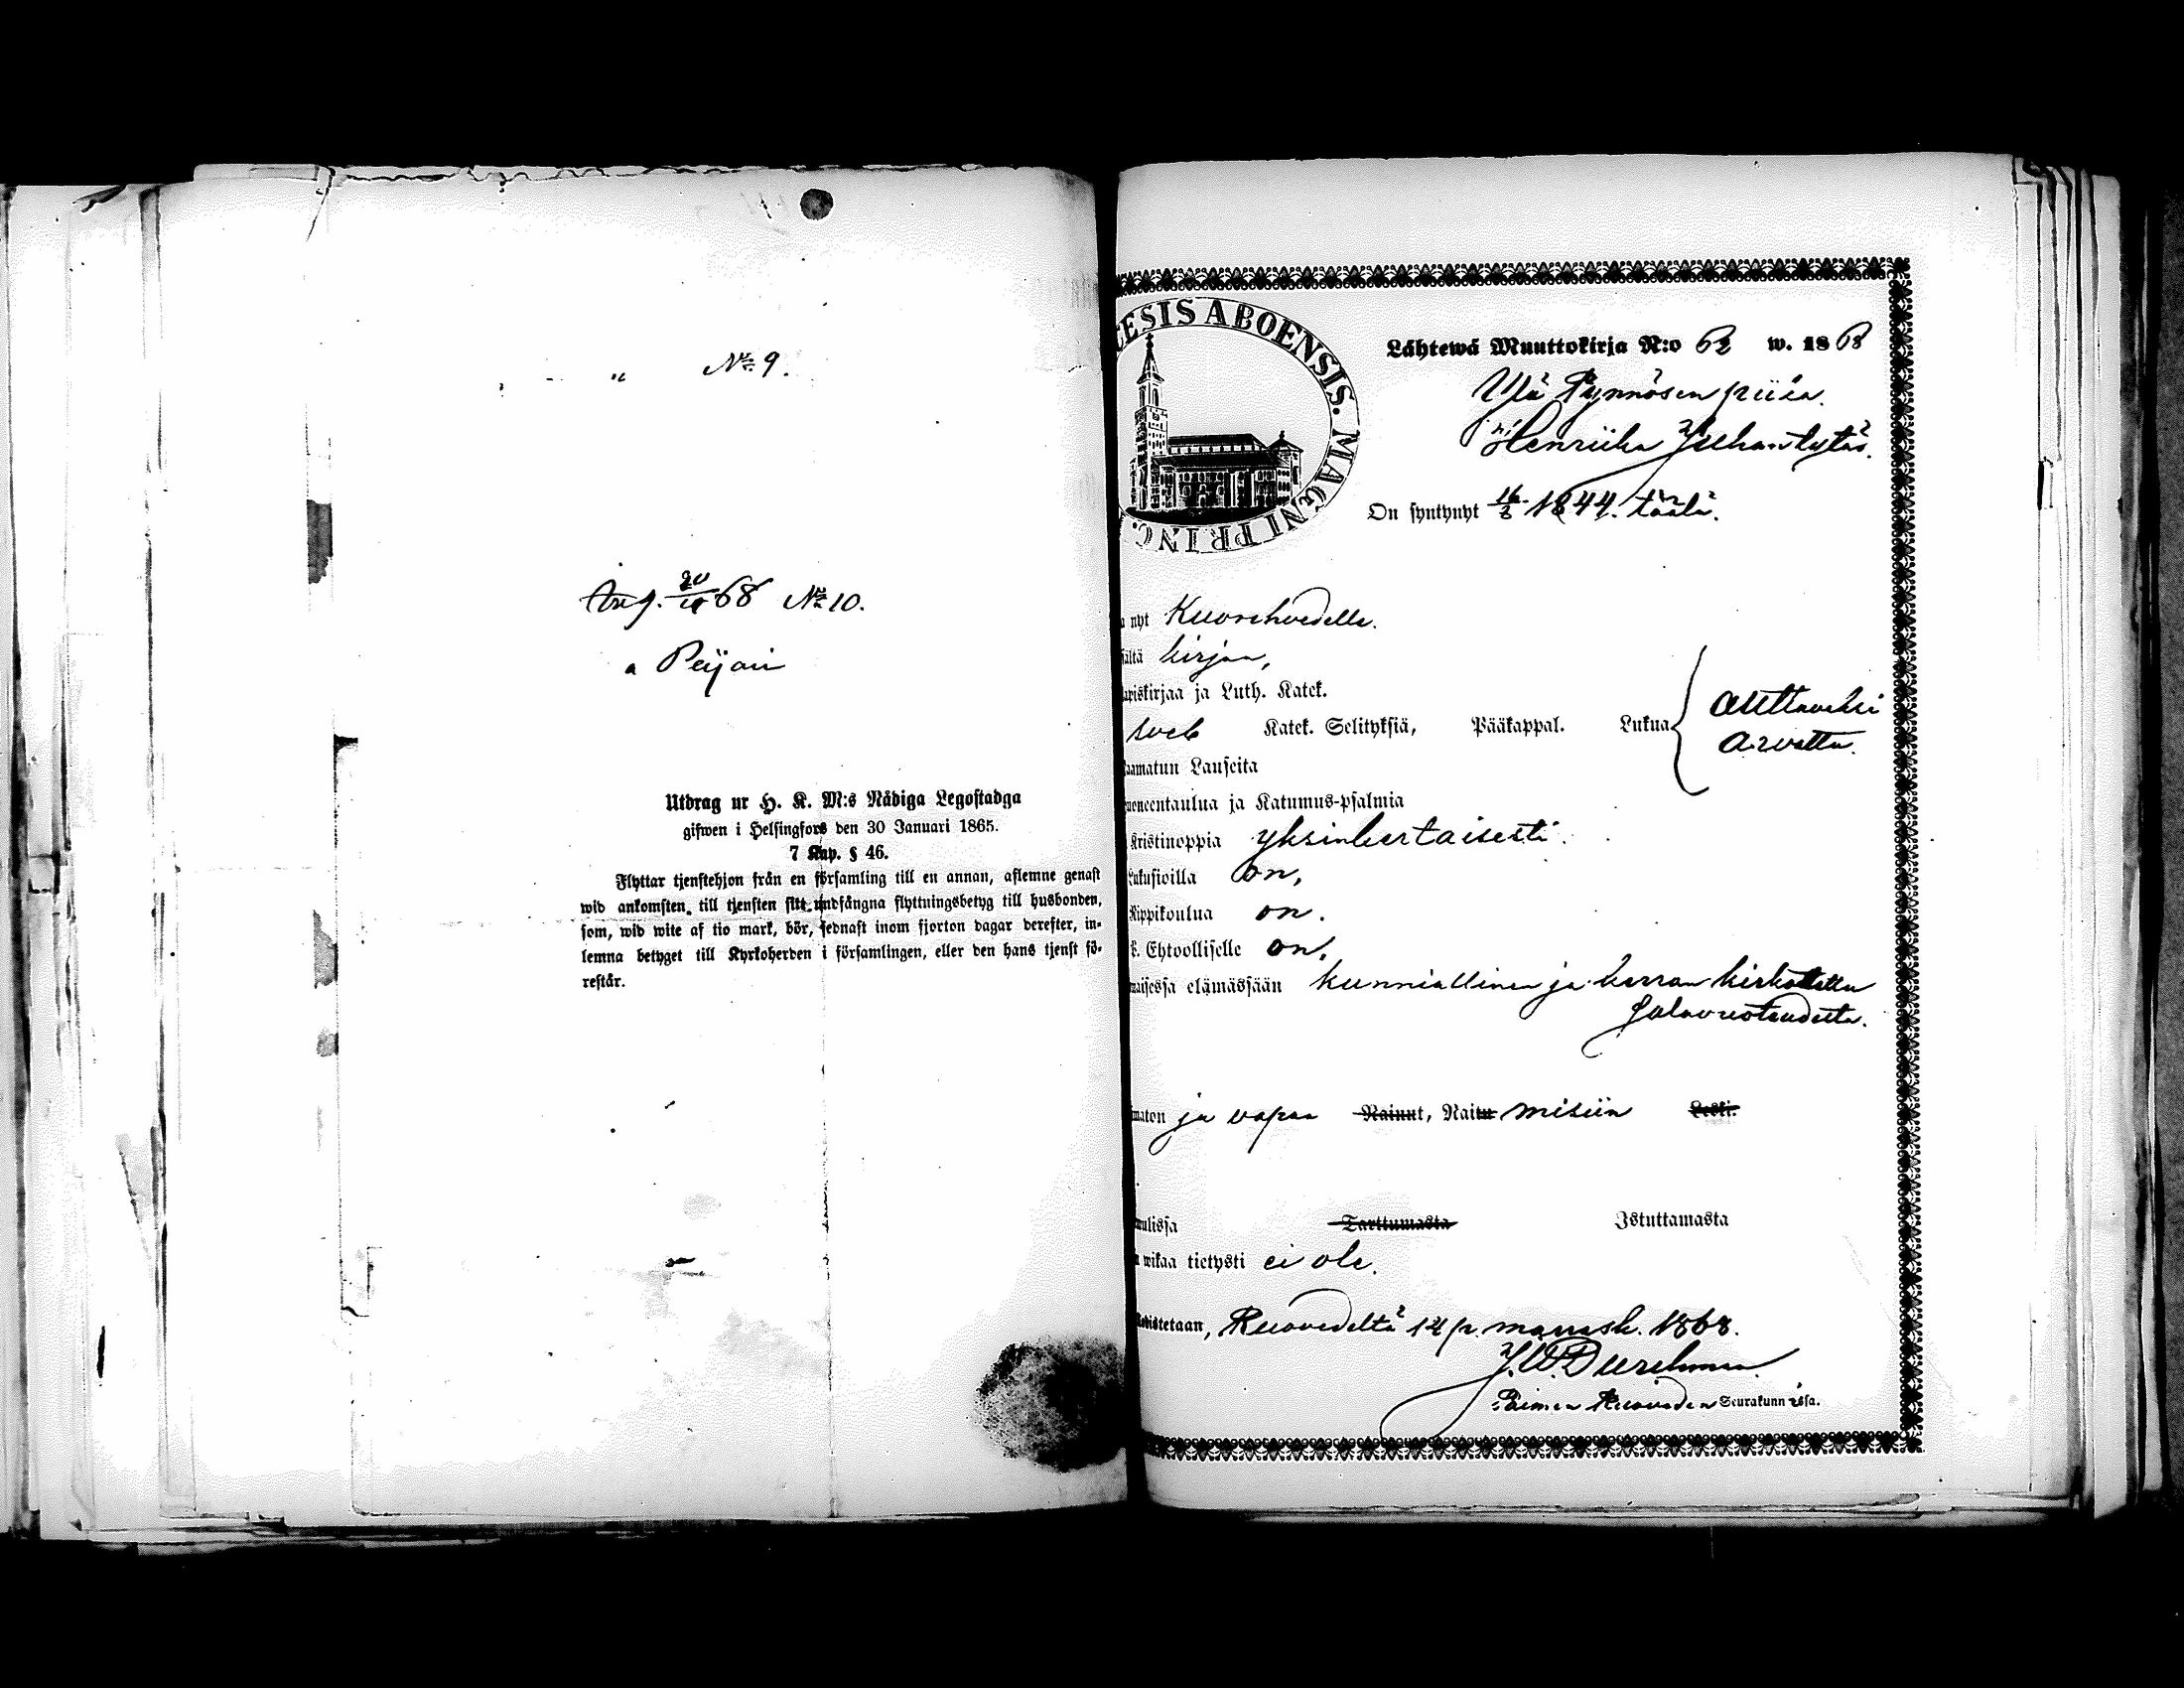 " № 9.
Ang. 20/10 68 № 10.
a Peijari
Utdrag ur H. K. M:s Nådiga Legostadga
gifwen i Helsingfors den 30 Januari 1865.
7 Kap. § 46.
Flyttar tjenstehjon från en församling till en annan, aflemne genast
wid ankomsten till tjensten sitt undfångna flyttningsbetyg till husbonden,
som, wid wite af tio mark, bör, sednast inom fjorton dagar derefter, in-
lemna betyget till Kyrkoherden i församlingen, eller den hans tjenst fö-
restår.
CESIS ABOENSIS. MAGNI PRINC.
Lähtewä Muuttokirja N:o 62 w. 1868
Ylä Pynnösen piika
Henriika Juhantytär.
On syntynyt 16/3 1844. täälä.
nyt Kuorehwedelle.
sältä kirjaa,
apiskirjaa ja Luth. Katek.
Katek. Selityksiä, Pääkappal. Lukua
auttawasti
arwattu.
aamatun Lauseita
uoneentaulua ja Katumus-psalmia
Kristinoppia yksinkertaisesti.
Lukusioilla on,
Rippikoulua on.
k. Ehtoolliselle on,
maisessa elämässään kunniallinen ja kerran kirkotettu
salawuoteudesta.
maton ja vapaa Nainut, Naitu misiin Leski.
ulissa Tarttumasta Istuttamasta
wikaa tietysti ei ole.
distetaan, Ruovedeltä 14 p. marrask. 1868.
J. W. Durchman
Paimen Ruoveden Seurakunnissa.